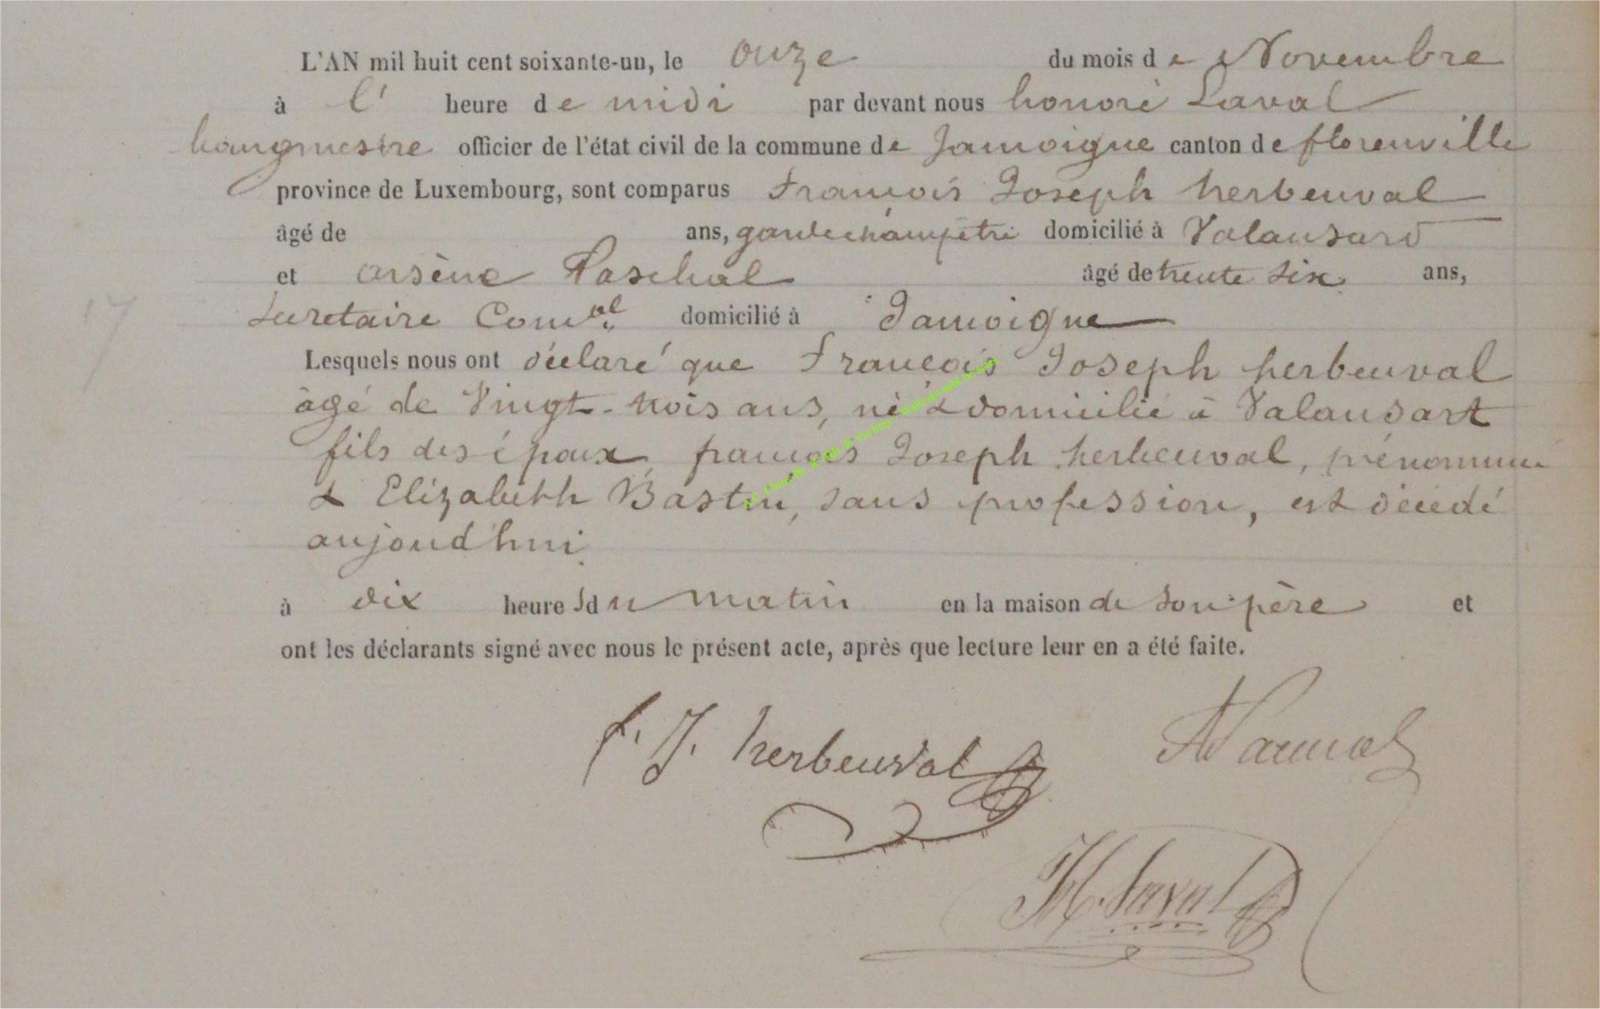 L'AN mil huit cent soixante-un, le onze du mois de Novembre
à l' heure de midi par devant nous honoré Laval
bourgmestre officier de l'état civil de la commune de Jamoigne canton de florenville
province de Luxembourg, sont comparus François Joseph herbeuval
âgé de ans, garde champêtre domicilié à Valansard
et arsène Paschal âgé de trente six ans,
Secretaire Comal domicilié à Jamoigne
Lesquels nous ont déclaré que François Joseph herbeuval
âgé de Vingt-trois ans, né & domicilié à Valansart
fils des époux françois Joseph herbeuval, prénommé
& Elizabeth Bastin, sans profession, est décédé
aujourd'hui
à dix heures du matin en la maison de son père et
ont les déclarants signé avec nous le présent acte, après que lecture leur en a été faite.
f. J. herbeuval
H. Laval
17